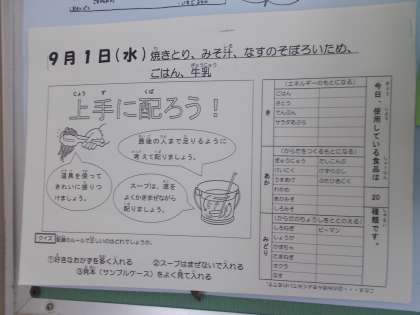 9月1日(水) 焼きとり、みそ汁、なすのそぼろいため、
ごはん、牛乳
上手に配ろう！
最後の人まで足りるように
考えて配りましょう。
道具を使って
きれいに盛りつ
けましょう。
スープは、底を
よくかきまぜながら
配りましょう。
クイズ 配膳のルールで正しいのはどれでしょうか。
①好きなおかずを多く入れる ②スープはまぜないで入れる
③見本(サンプルケース)をよく見て入れる
今日、使用している食品は 20 種類です。
き
(エネルギーのもとになる)
ごはん
さとう
でんぷん
サラダあぶら
あか
(からだをつくるもとになる)
ぎゅうにゅう
けいにく
わかめ
あかみそ
しろみそ
みどり
(からだのちょうしをととのえる)
しろねぎ ピーマン
しょうが
かぼちゃ
たまねぎ